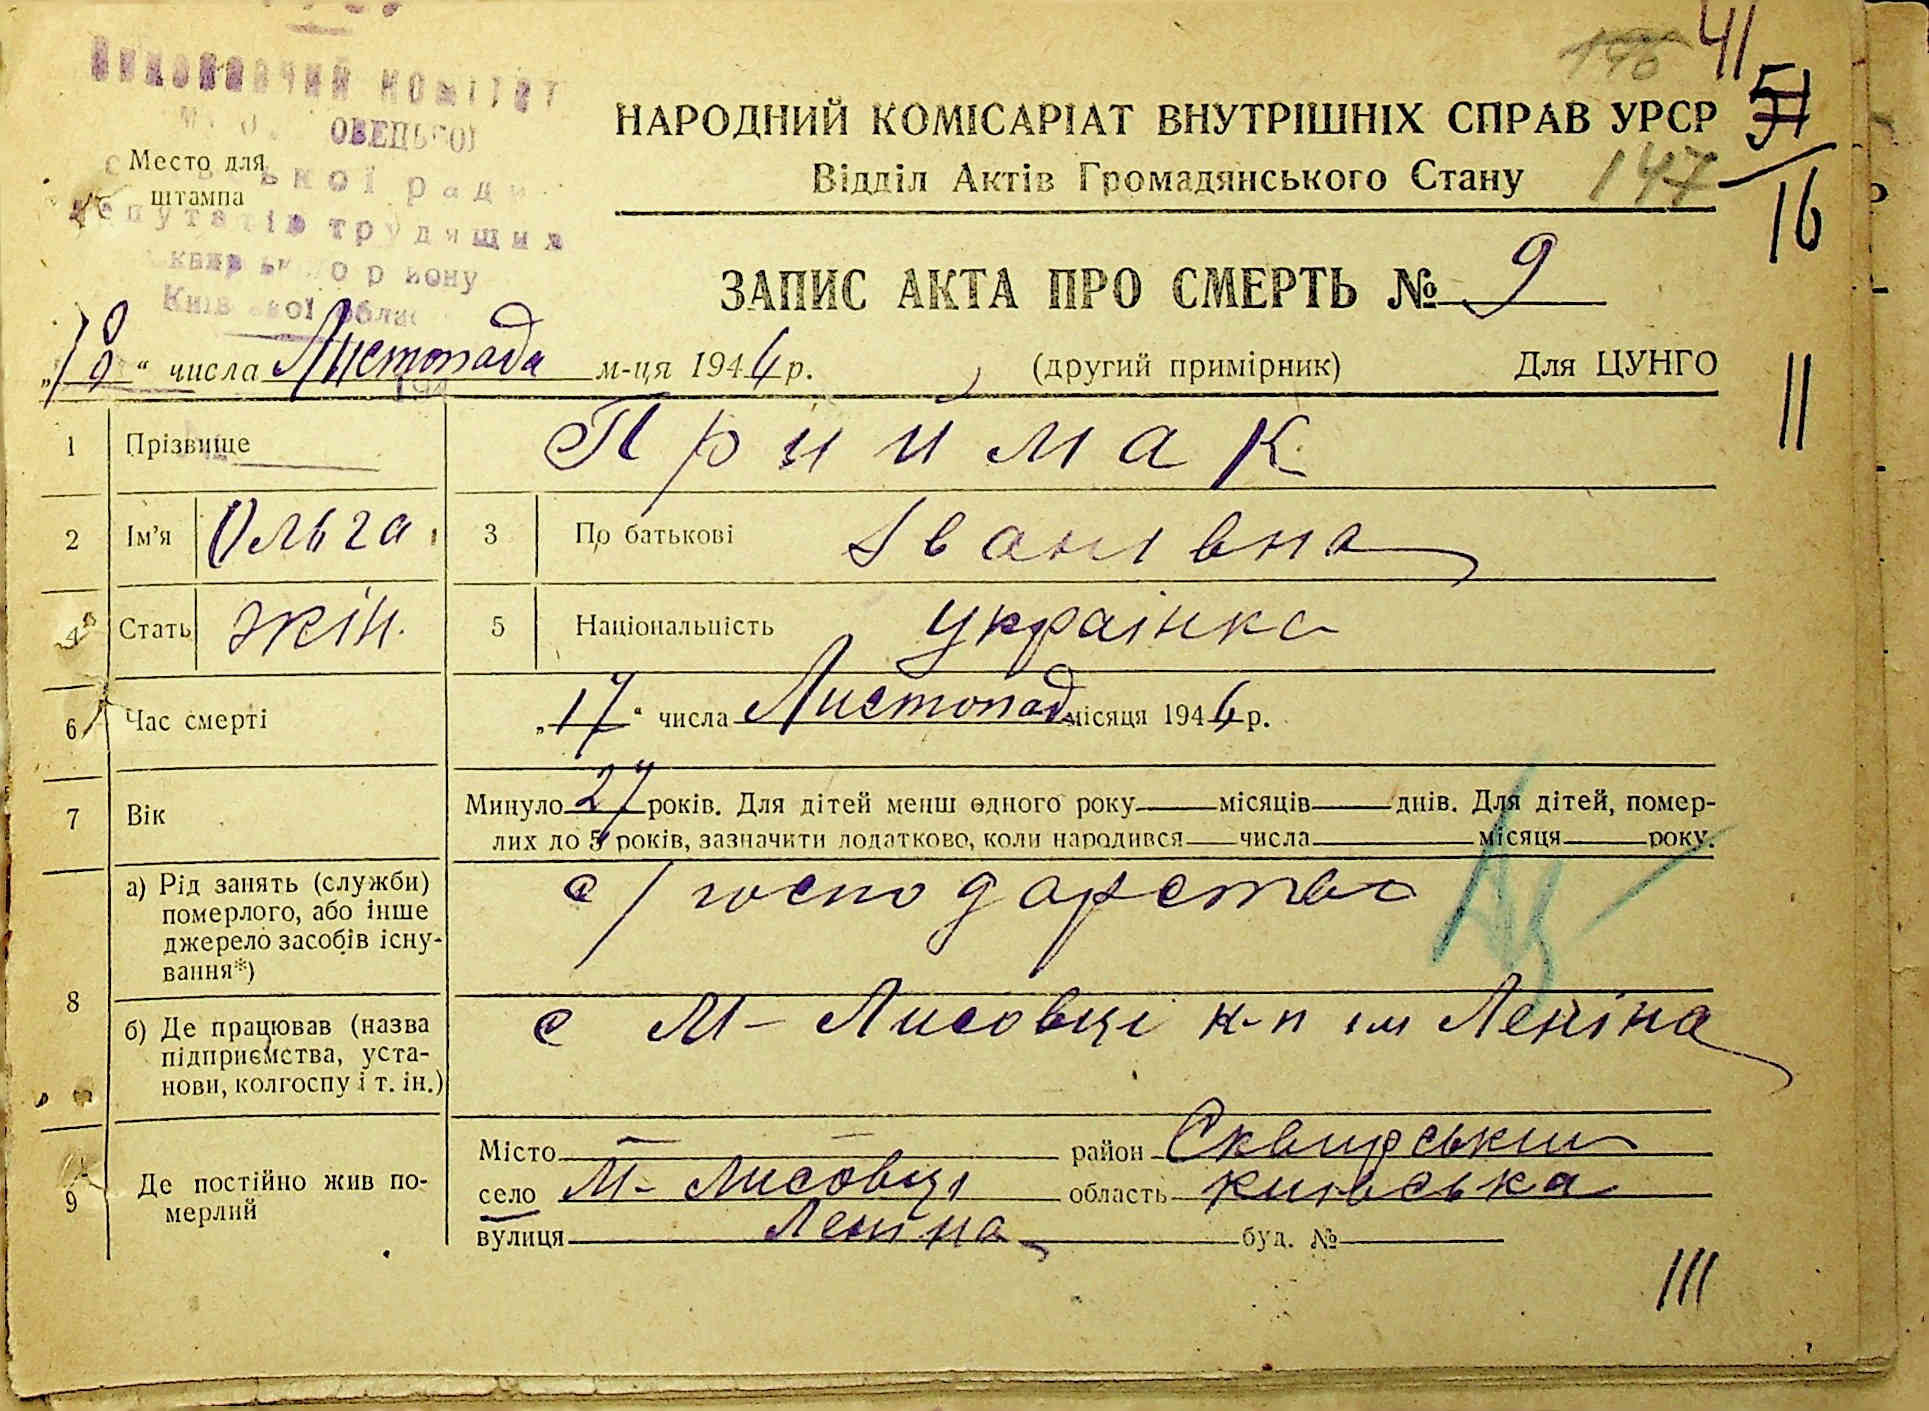 41
146
51
ВИКОНАВЧИЙ КОМІТЕТ
НАРОДНИЙ КОМІСАРІАТ ВНУТРІШНІХ СПРАВ УРСР
Место для
штампа
ради
депутатів трудящих
району
Відділ Актів Громадянського Стану
147
16
ЗАПИС АКТА ПРО СМЕРТЬ № 9
„18“ числа Листопада м-ця 1944 р. (другий примірник) Для ЦУНГО
II
1 Прізвище Приймак
2 Ім’я Ольга 3 По батькові Іванівна
4 Стать жін. 5 Національність українка
6 Час смерті „17“ числа Листопад місяця 1944 р.
7 Вік Минуло 27 років. Для дітей менш одного року місяців днів. Для дітей, помер-
лих до 5 років, зазначити додатково, коли народився числа місяця року.
8 а) Рід занять (служби)
померлого, або інше
джерело засобів існу-
вання*)
с/господарство
б) Де працював (назва
підприємства, уста-
нови, колгоспу і т. ін.)
с М-Лисовці к-п ім Леніна
9 Де постійно жив по-
мерлий
Місто — район Сквирський
село М-Лисовці область київська
вулиця Леніна буд. №
III